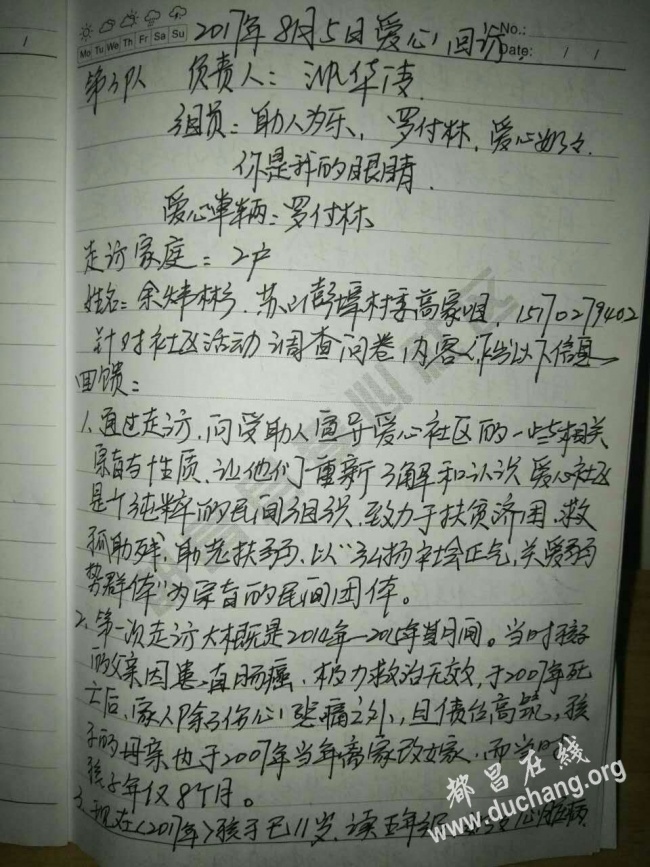 No:
Mo Tu We Th Fr Sa Su
Date: / /
2017年8月5日爱心回访
第3队 负责人: 华凌
组员:助人为乐、罗付林、爱心奶々
你是我的眼睛
爱心车辆:罗付林
走访家庭:2户
姓名:余炜彬 苏山彭埠村李高家咀,15170279402
针对社区活动调查问卷内容,作出以下信息
回馈:
1.通过走访,向受助人宣导爱心社区的一些相关
宗旨与性质,让他们重新了解和认识爱心社区
是个纯粹的民间组织,致力于扶贫济困、救
孤助残、助老扶弱、以“弘扬社会正气,关爱弱
势群体”为宗旨的民间团体。
2、第一次走访大概是2014年—2015年其间。当时孩子
的父亲因患直肠癌,极力救治无效,于2007年死
亡后,家人除了伤心悲痛之外,且债台高筑,孩
子的母亲也于2007年当年离家改嫁,而当时
孩子年仅8个月。
3、现在<2017年>孩子已11岁,读五年级 心脏病
都昌在线
www.duchang.org